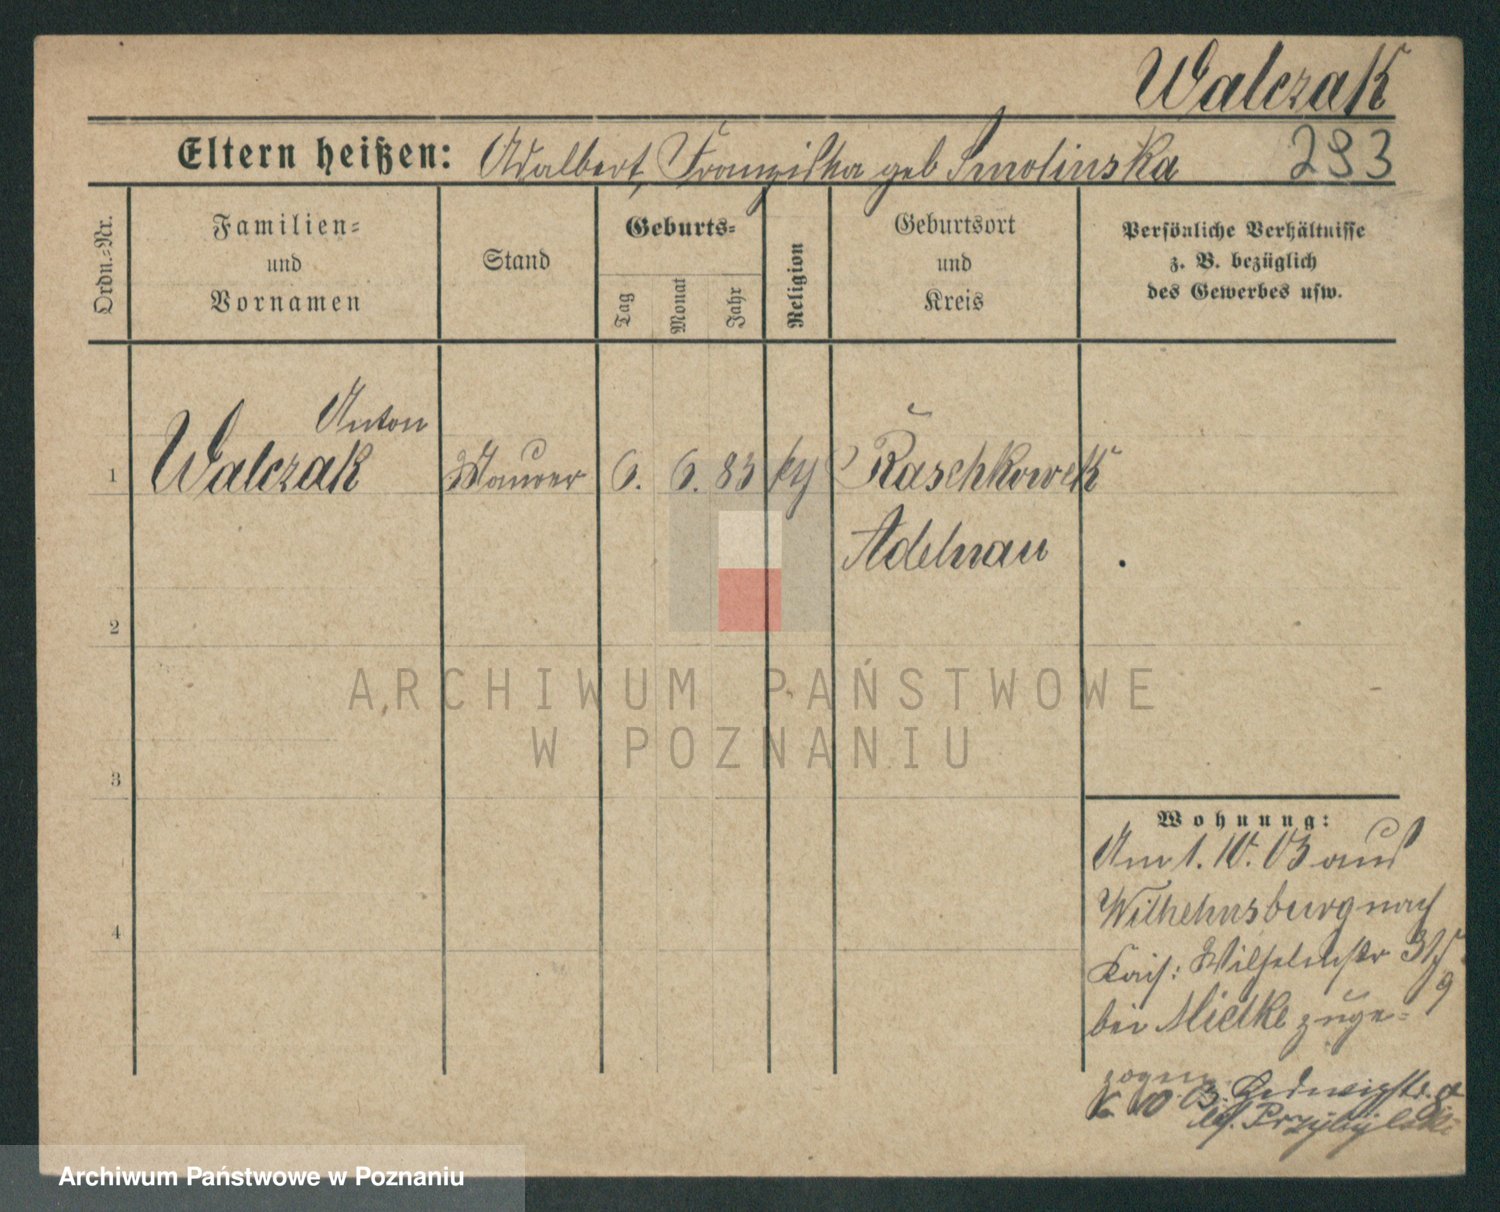 Walczak
Eltern heißen: Adalbert, Franziska geb Smolinska 293
Ordn.-Nr.
Familien-
und
Vornamen
Stand
Geburts-
Tag
Monat
Jahr
Religion
Geburtsort
und
Kreis
Persönliche Verhältnisse
z. B. bezüglich
des Gewerbes usw.
Anton
1 Walczak Maurer 6. 6. 83 kth Raschkowek
Adelnau
2
3
4
ARCHIWUM PAŃSTWOWE
W POZNANIU
Wohnung:
Am 1. 10. 03 aus
Wilhelmsburg nach
Kais: Wilhelmstr
bei Mielke zuge-
zogen
10. 03. Hedwigstr.
Archiwum Państwowe w Poznaniu